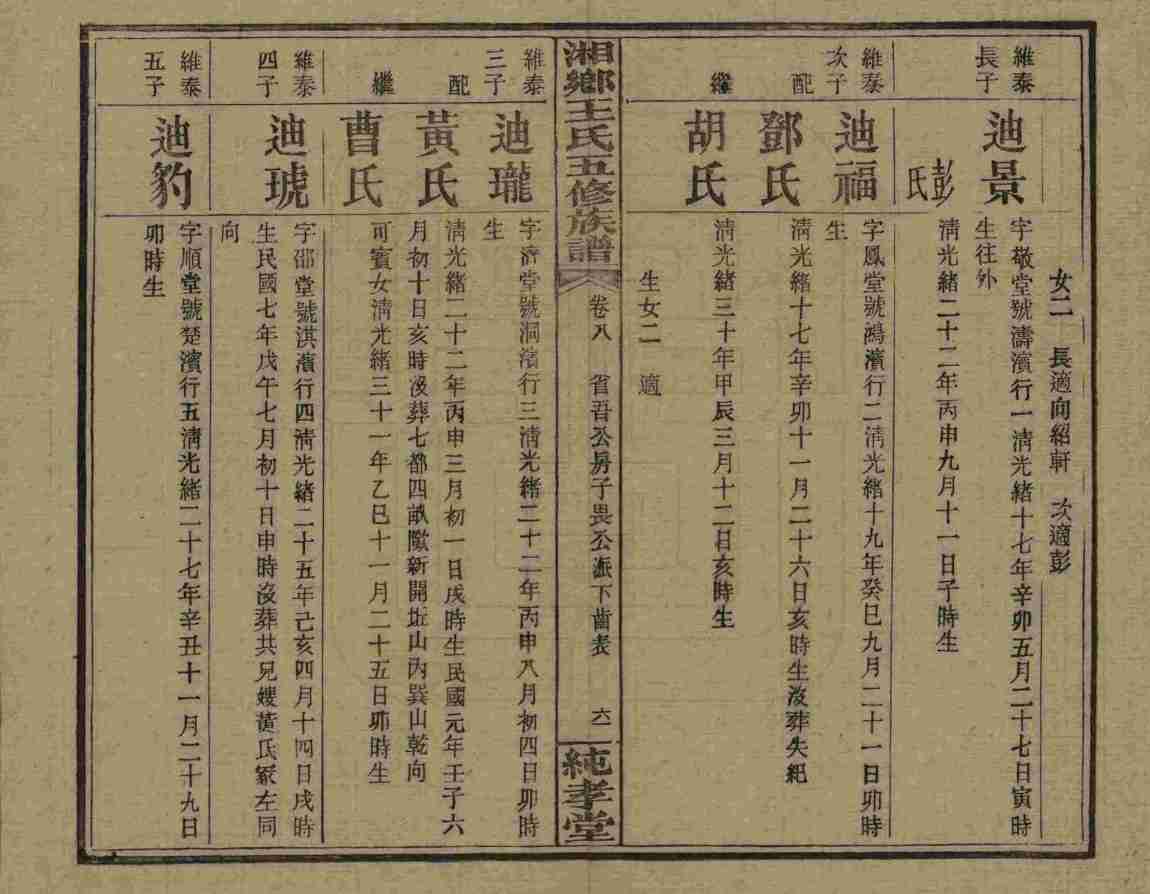 女二　長適向紹軒　次適彭
維泰
長子
迪景
字敬堂號濤濱行一清光緒十七年辛卯五月二十七日寅時
生往外
彭氏
清光緒二十二年丙申九月十一日子時生
維泰
次子
迪福
字鳳堂號鴻濱行二清光緒十九年癸巳九月二十一日卯時
生
配
鄧氏
清光緒十七年辛卯十一月二十六日亥時生沒葬失紀
繼
胡氏
清光緒三十年甲辰三月十二日亥時生
生女二　適
湘鄉王氏五修族譜
卷八　省吾公房子畏公派下齒表　六一
純孝堂
維泰
三子
迪瓏
字濟堂號洞濱行三清光緒二十二年丙申八月初四日卯時
生
配
黃氏
清光緒二十二年丙申三月初一日戌時生民國元年壬子六
月初十日亥時沒葬七都四畝歐新開坵山內巽山乾向
繼
曹氏
可賓女清光緒三十一年乙巳十一月二十五日卯時生
維泰
四子
迪琥
字邵堂號淇濱行四清光緒二十五年己亥四月十四日戌時
生民國七年戊午七月初十日申時沒葬共兄嫂黃氏冢左同
向
維泰
五子
迪豹
字順堂號楚濱行五清光緒二十七年辛丑十一月二十九日
卯時生